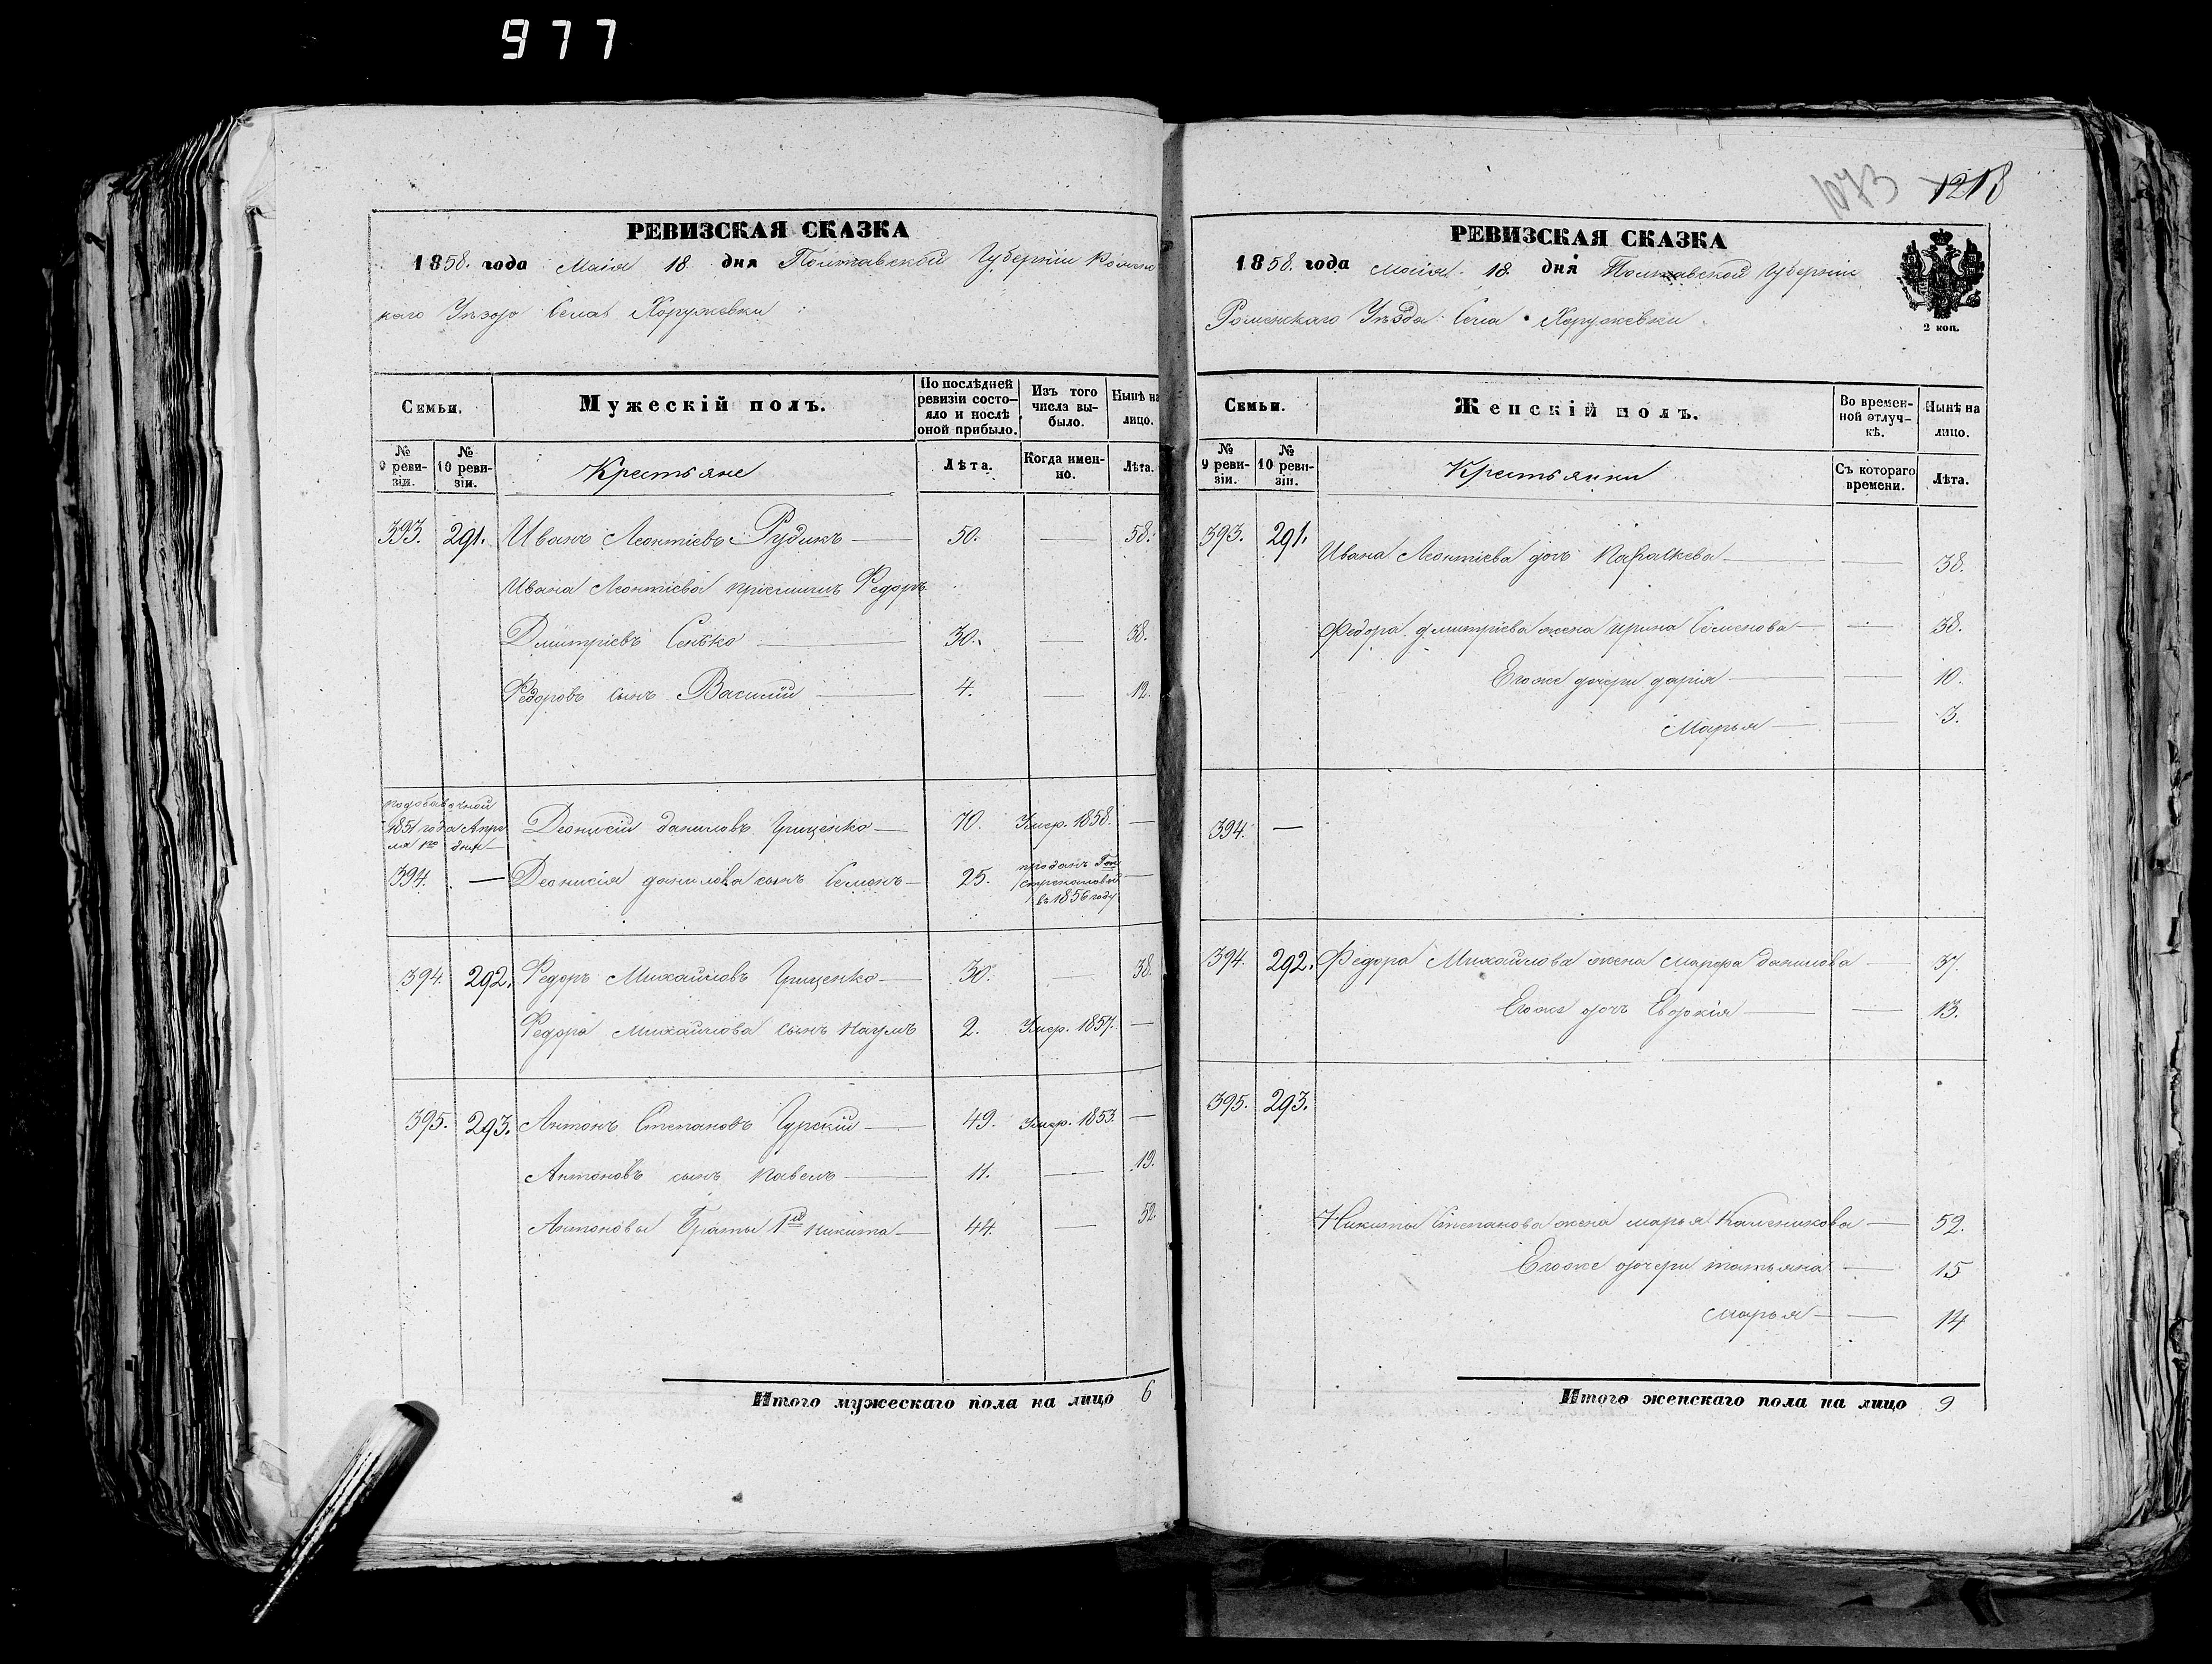 977
РЕВИЗСКАЯ СКАЗКА
1858. года Маія 18 дня Полтавской Губерніи Роменс
каго Уѣзда Села Хоружевки
Семьи.
Мужескій полъ.
По послѣдней ревизіи состояло и послѣ оной прибыло.
Изъ того числа выбыло.
Нынѣ на лицо.
№ 9 ревизіи.
№ 10 ревизіи.
Крестьяне
Лѣта.
Когда именно.
Лѣта.
393. 291. Иванъ Леонтіевъ Рудикъ — 50. — 58.
Ивана Леонтіева пріемышъ Федоръ
Дмитріевъ Сенько — 30. — 38.
Федоровъ сынъ Василій — 4. — 12.
подобавочной
1851 года Апре
ля дня
Деонисій Даниловъ Грищенко — 70. Умер. 1858. —
394. — Деонисія данилова сынъ Семенъ — 25. проданъ
в 1856 году —
394. 292. Федоръ Михайловъ Грищенко — 30. — 38.
Федора Михайлова сынъ Наумъ 2. Умер. 1857. —
395. 293. Антонъ Степановъ Гурскій — 49. Умер. 1853. —
Антоновъ сынъ Павелъ — 11. — 19.
Антоновы Браты 1й Никита — 44. — 52.
Итого мужескаго пола на лицо 6
1073 1218
РЕВИЗСКАЯ СКАЗКА
1858. года маія 18. дня Полтавской Губерніи
Роменскаго Уѣзда Села Хоружевки
2 коп.
Семьи.
Женскій полъ.
Во временной отлучкѣ.
Нынѣ на лицо.
№ 9 ревизіи.
№ 10 ревизіи.
Крестьянки
Съ котораго времени.
Лѣта.
393. 291. Ивана Леонтіева дочь — — 38.
Федора дмитріева жена Ирина Семенова — — 38.
Егоже дочери дарія — — 10.
Марья — — 3.
394. —
394. 292. Федора Михайлова жена Марфа данилова — 37.
Егоже дочь Евдокія — — 13.
395. 293.
Никиты Степанова жена марья — 52.
Егоже дочери татьяна — 15
Марья — — 14
Итого женскаго пола на лицо 9